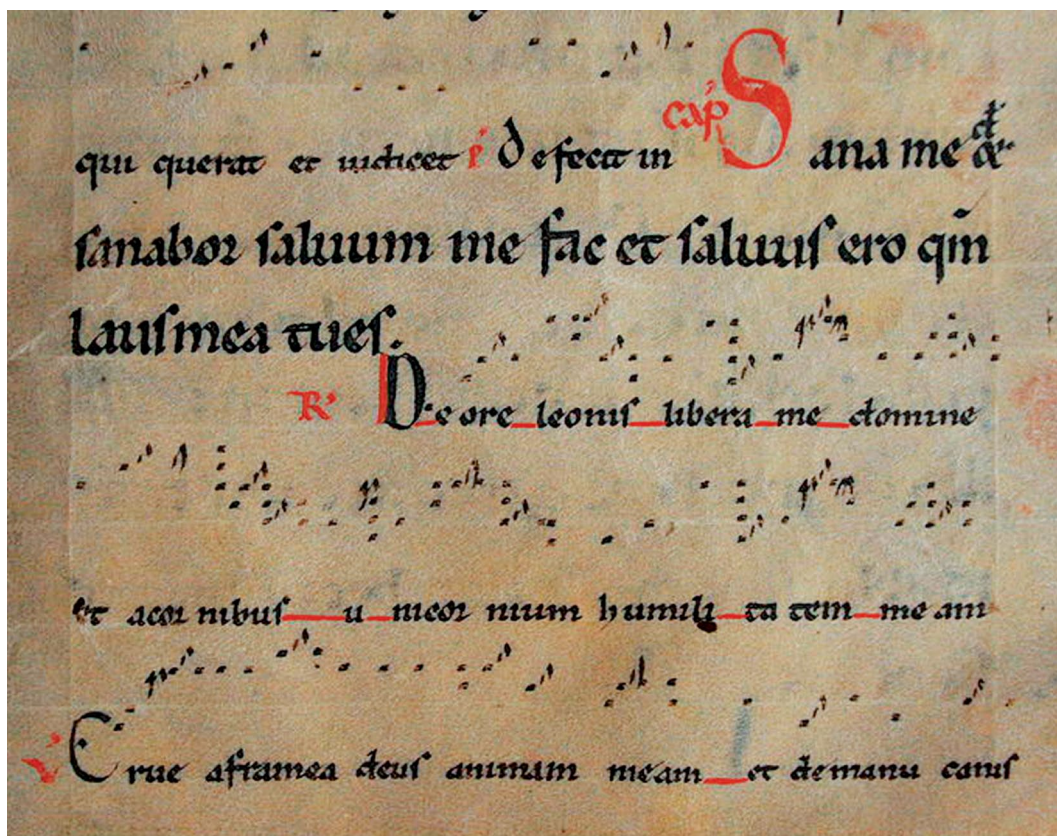 qui querat et iudicet ℣ Defecit in cap̄ Sana me dn̄e
sanabor saluum me fac et saluus ero qm̄
laus mea tu es.
R̸ De ore leonis libera me domine
et acornibus unicornium humilitatem meam
℣ Erue aframea deus animam meam et demanu canis